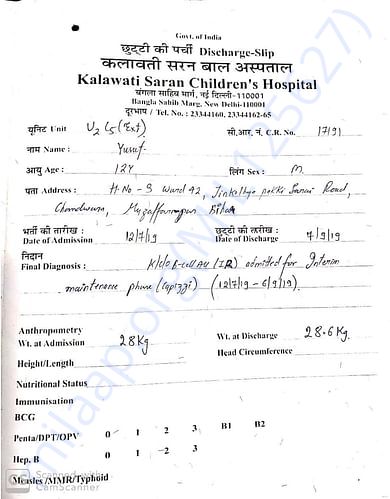 Govt. of India
छुट्टी की पर्ची Discharge-Slip
कलावती सरन बाल अस्पताल
Kalawati Saran Children's Hospital
बंगला साहिब मार्ग, नई दिल्ली-110001
Bangla Sahib Marg, New Delhi-110001
दूरभाष / Tel. No. : 23344160, 23344162-65
यूनिट Unit U2 L5 (Ext) सी.आर. नं. C.R. No. 17191
नाम Name : Yusuf
आयु Age : 12Y लिंग Sex : M
पता Address : H.No - 3 Ward 42, Pakki Sarai Road,
Chandwara, Muzaffarnagar Bihar
भर्ती की तारीख : 12/7/19 छुट्टी की तारीख :
Date of Admission Date of Discharge 7/9/19
निदान
Final Diagnosis : K/C/O B-cell ALL (IR) admitted for Interim
maintenance phase (12/7/19 - 6/9/19).
Anthropometry
Wt. at Admission 28Kg Wt. at Discharge 28.6 Kg
Height/Length Head Circumference
Nutritional Status
Immunisation
BCG
Penta/DPT/OPV 0 1 2 3 B1 B2
Hep. B 0 1 2 3
Measles /MMR/Typhoid
Scanned with
CamScanner